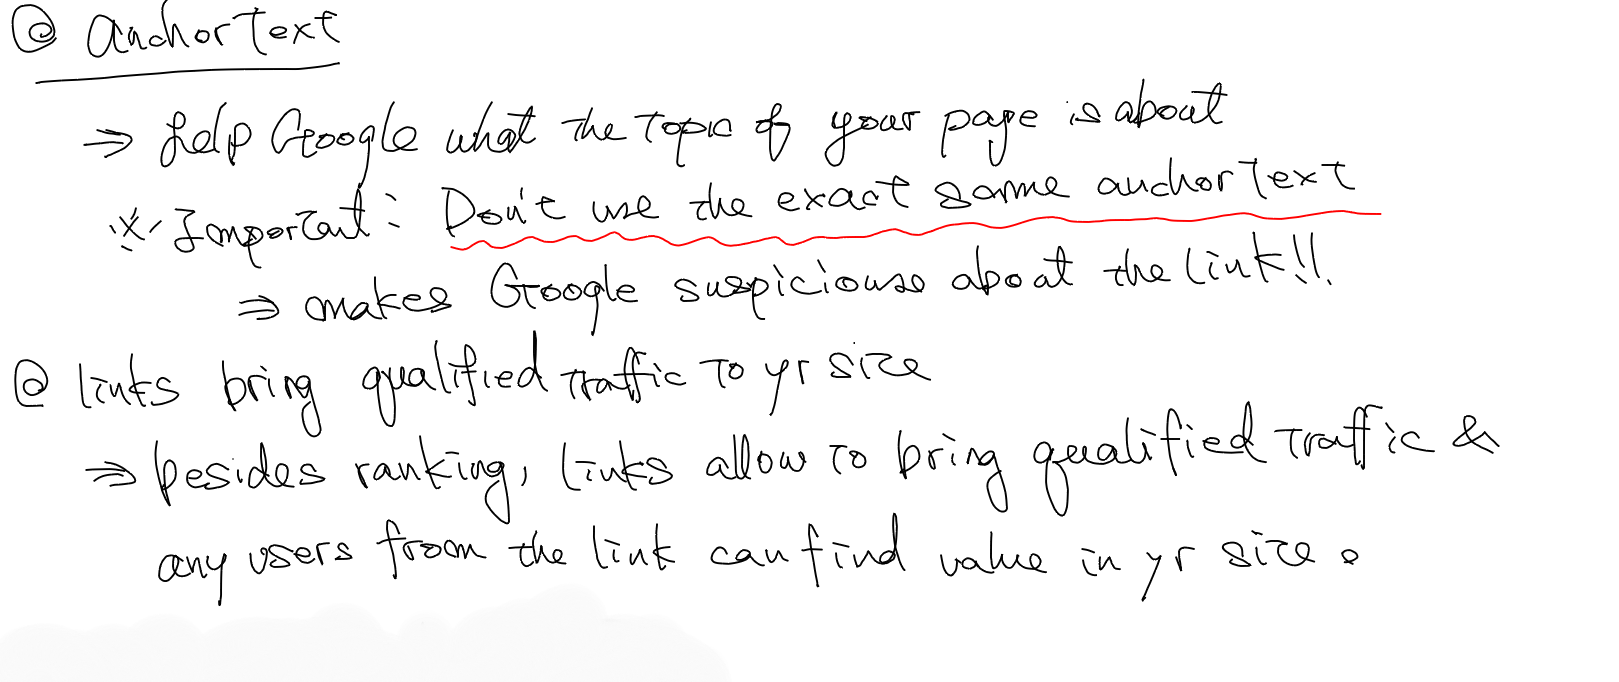 @ anchor text
⇒ help Google what the topic of your page is about
※ Important: Don't use the exact same anchor text
⇒ makes Google suspiciouse about the link!!
@ links bring qualified traffic to yr site
⇒ besides ranking, links allow to bring qualified traffic &
any users from the link can find value in yr site.